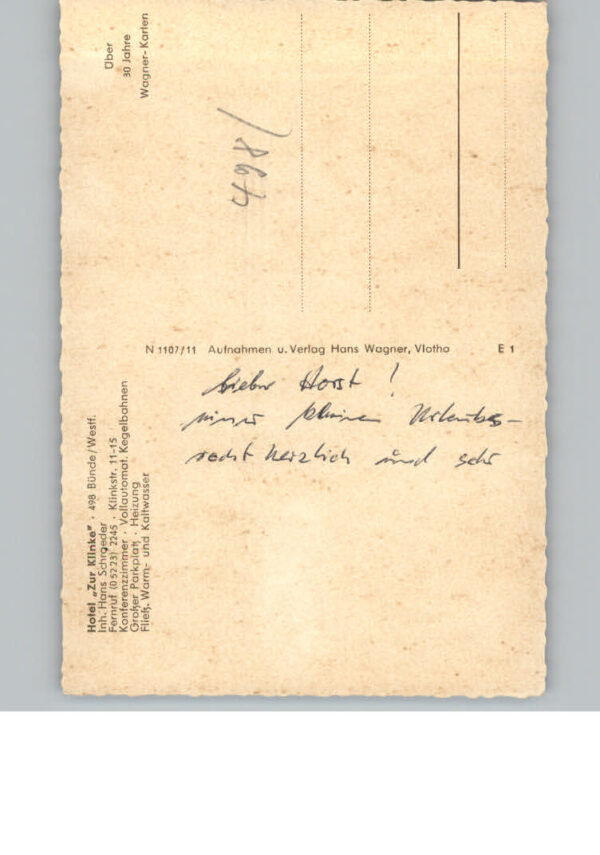 Über
30 Jahre
Wagner-Karten
498/
N 1107/11 Aufnahmen u. Verlag Hans Wagner, Vlotho E 1
Lieber Horst!
kleinen Urlaubs-
recht herzlich und sehr
Hotel „Zur Klinke" · 498 Bünde/Westf.
Inh. Hans Schroeder
Fernruf (0 52 23) 2245 · Klinkstr. 11-15
Konferenzzimmer · Vollautomat. Kegelbahnen
Großer Parkplatz · Heizung
Fließ. Warm- und Kaltwasser